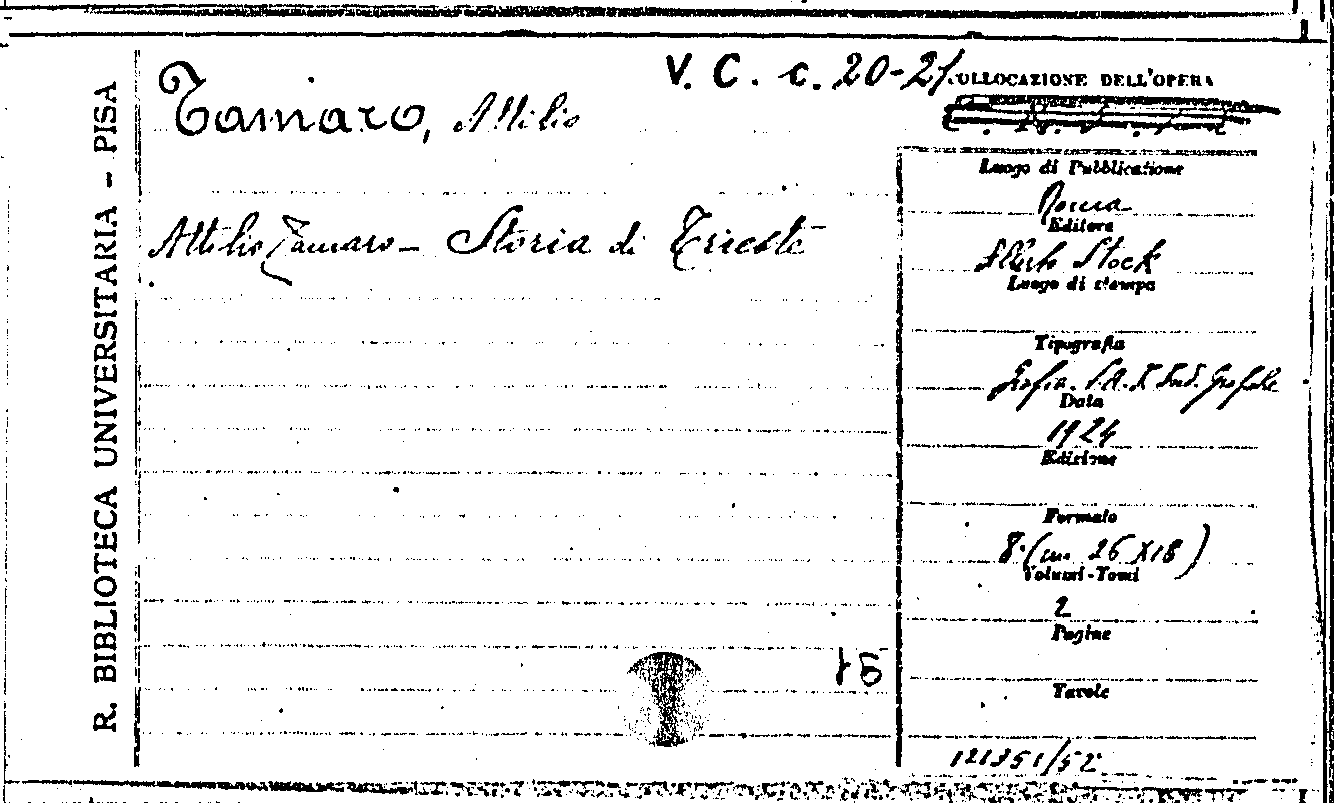 R. BIBLIOTECA UNIVERSITARIA - PISA
V. C. c. 20-21
COLLOCAZIONE DELL'OPERA
Tamaro, Attilio
Attilio Tamaro - Storia di Trieste
Luogo di Pubblicazione
Roma
Editore
Alberto Stock
Luogo di stampa
Tipografia
Grafia. S.A.I. Ind. Grafiche
Data
1924
Edizione
Formato
8° (cm. 26 X 18)
Volumi-Tomi
2
Pagine
15
Tavole
121351/52